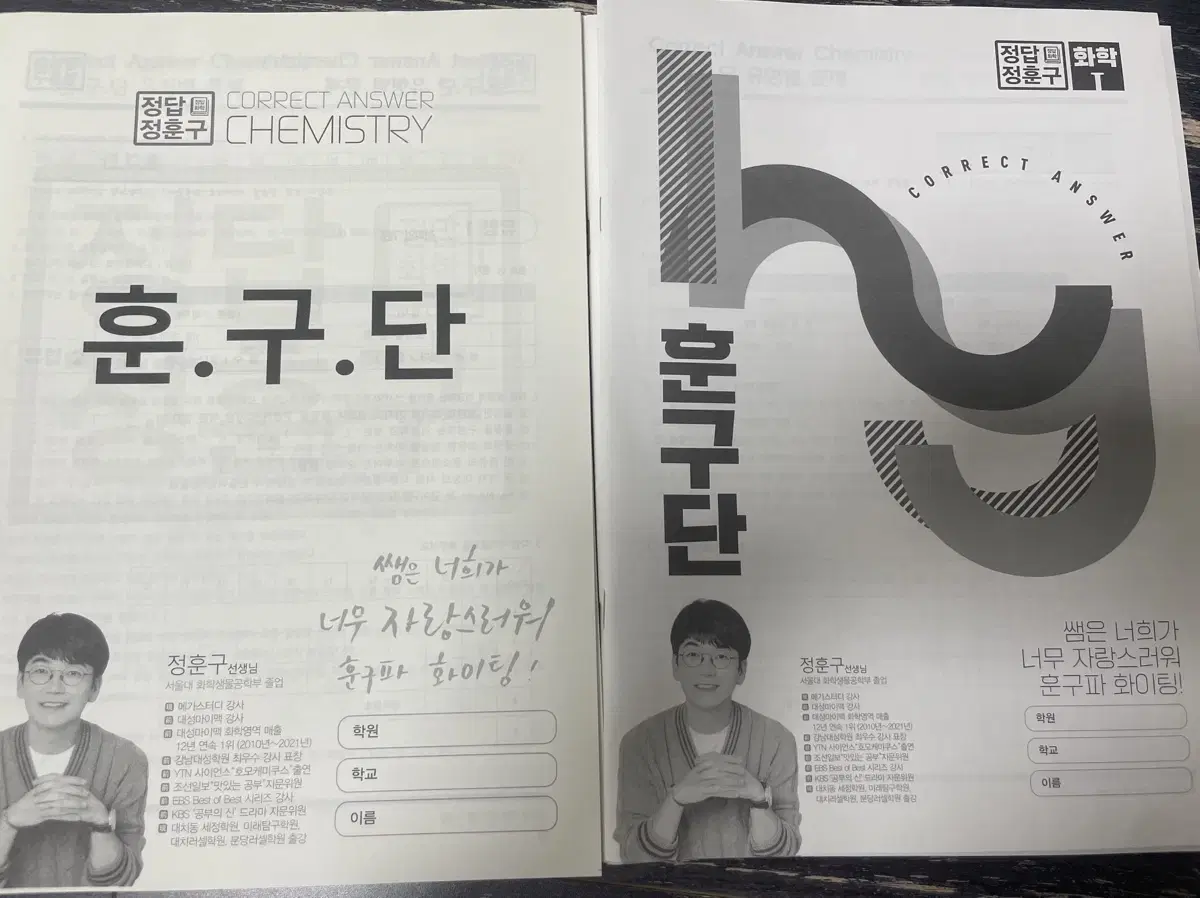 정답
정훈구
CORRECT ANSWER
CHEMISTRY
훈.구.단
쌤은 너희가
너무 자랑스러워
훈구파 화이팅!
정훈구선생님
서울대 화학생물공학부 졸업
메가스터디 강사
대성마이맥 강사
대성마이맥 화학영역 매출
12년 연속 1위 (2010년~2021년)
강남대성학원 최우수 강사 표창
YTN 사이언스"호모케미쿠스"출연
조선일보"맛있는 공부"자문위원
EBS Best of Best 시리즈 강사
KBS '공부의 신' 드라마 자문위원
대치동 세정학원, 미래탐구학원,
대치러셀학원, 분당러셀학원 출강
학원
학교
이름
정답
정훈구
화학
I
CORRECT ANSWER
훈구단
쌤은 너희가
너무 자랑스러워
훈구파 화이팅!
정훈구선생님
서울대 화학생물공학부 졸업
메가스터디 강사
대성마이맥 강사
대성마이맥 화학영역 매출
12년 연속 1위 (2010년~2021년)
강남대성학원 최우수 강사 표창
YTN 사이언스"호모케미쿠스"출연
조선일보"맛있는 공부"자문위원
EBS Best of Best 시리즈 강사
KBS '공부의 신' 드라마 자문위원
대치동 세정학원, 미래탐구학원,
대치러셀학원, 분당러셀학원 출강
학원
학교
이름